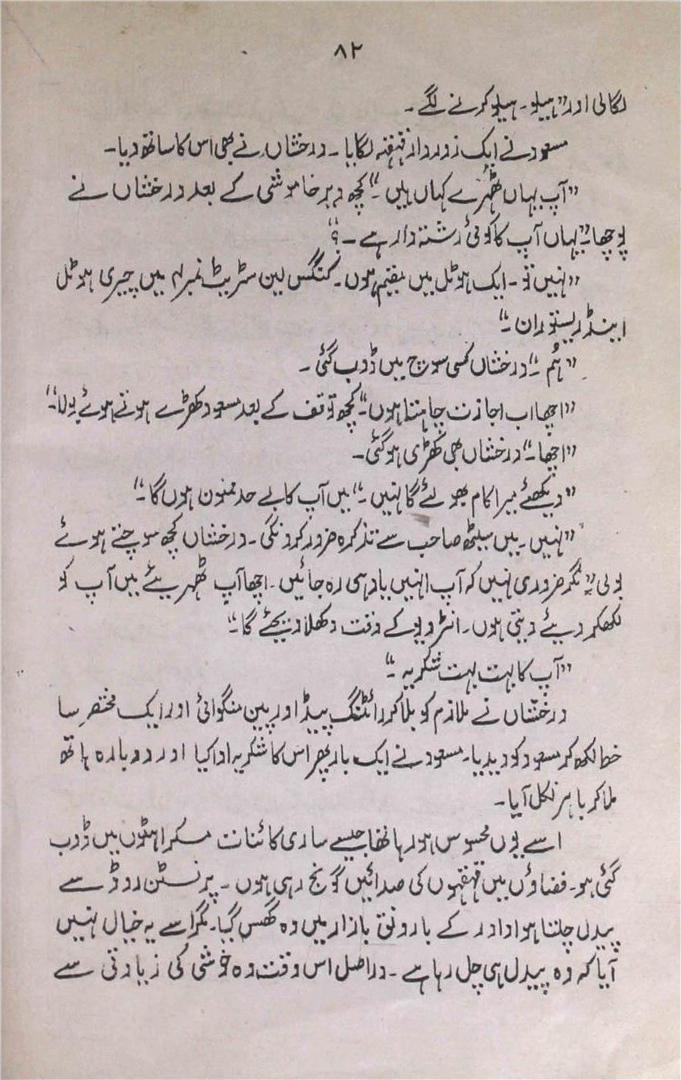 ۸۲
لگالی اور ”ہیلو۔ ہیلو کرنے لگے۔
مسعود نے ایک زوردار قہقہہ لگایا۔ درخشاں نے بھی اس کا ساتھ دیا۔
”آپ یہاں ٹھہرے کہاں ہیں۔“ کچھ دیر خاموشی کے بعد درخشاں نے
پوچھا۔ ”یہاں آپ کا کوئی رشتہ دار ہے۔؟“
”نہیں تو۔ ایک ہوٹل میں مقیم ہوں۔ کنگس لین سٹریٹ نمبر ۴ میں چیری ہوٹل
اینڈ ریستوران۔“
”ہُم“۔ درخشاں کسی سوچ میں ڈوب گئی۔
”اچھا اب اجازت چاہتا ہوں۔“ کچھ توقف کے بعد مسعود کھڑے ہوتے ہوئے بولا۔“
”اچھا۔“ درخشاں بھی کھڑی ہوگئی۔
”دیکھئے میرا کام بھولئے گا نہیں۔“ میں آپ کا بے حد ممنون ہوں گا۔“
”نہیں۔ میں سیٹھ صاحب سے تذکرہ ضرور کرونگی۔ درخشاں کچھ سوچتے ہوئے
بولی۔ ”مگر ضروری نہیں کہ آپ انہیں یاد ہی رہ جائیں۔ اچھا آپ ٹھہریئے میں آپ کو
لکھکر دیئے دیتی ہوں۔ انٹرویو کے وقت دکھلا دیجئے گا۔“
”آپ کا بہت بہت شکریہ۔“
درخشاں نے ملازم کو بلا کر رائٹنگ پیڈ اور پین منگوائی اور ایک مختصر سا
خط لکھ کر مسعود کو دیدیا۔ مسعود نے ایک بار پھر اس کا شکریہ ادا کیا اور دوبارہ ہاتھ
ملا کر باہر نکل آیا۔
اسے یوں محسوس ہو رہا تھا جیسے ساری کائنات مسکراہٹوں میں ڈوب
گئی ہو۔ فضاؤں میں قہقہوں کی صدائیں گونج رہی ہوں۔ پرنسٹن روڈ سے
پیدل چلتا ہوا دادر کے بارونق بازار میں وہ گھس گیا۔ مگر اسے یہ خیال نہیں
آیا کہ وہ پیدل ہی چل رہا ہے۔ دراصل اس وقت وہ خوشی کی زیادتی سے